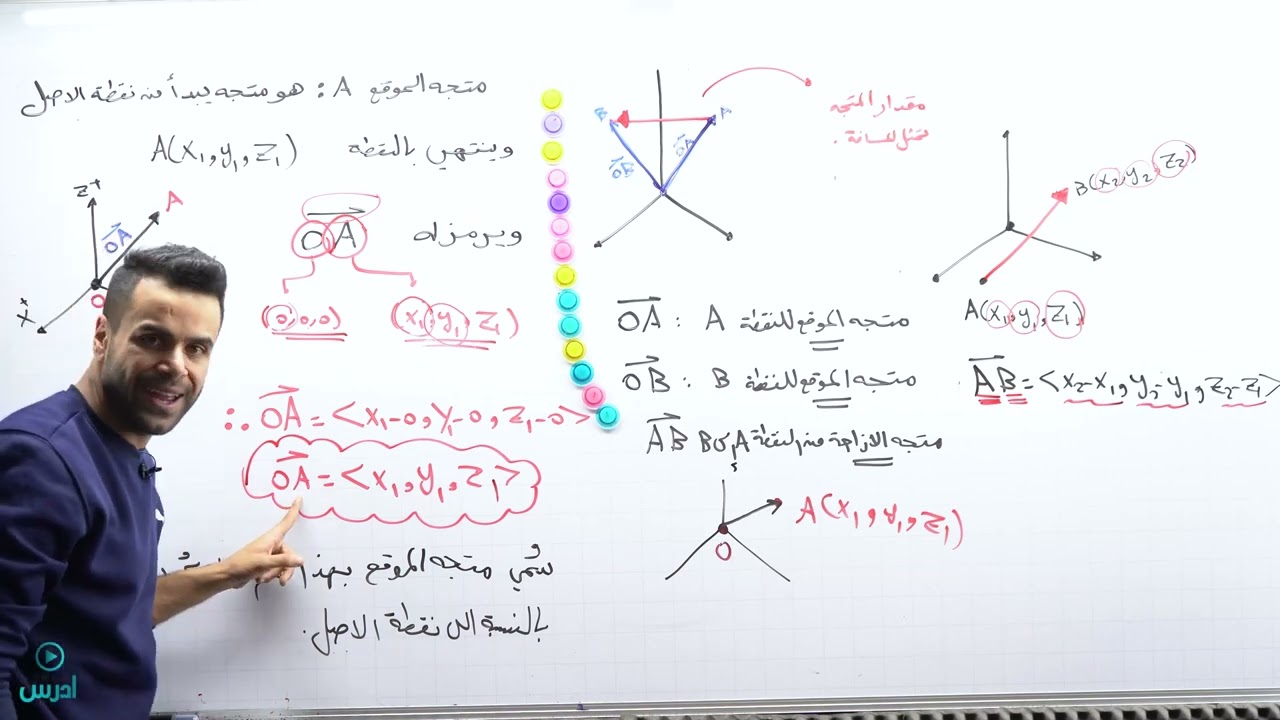 متجه الموقع A : هو متجه يبدأ من نقطة الاصل
وينتهي بالنقطة A(x₁, y₁, z₁)
ويرمز له OA
(0,0,0) (x₁, y₁, z₁)
∴ OA = <x₁-0, y₁-0, z₁-0>
OA = <x₁, y₁, z₁>
سُمّي متجه الموقع بهذا
بالنسبة الى نقطة الاصل.
z⁺
A
OA
O
x⁺
B
A
OB
OA
مقدار المتجه
تمثل المسافة .
B(x₂, y₂, z₂)
A(x₁, y₁, z₁)
OA : متجه الموقع للنقطة A
OB : متجه الموقع للنقطة B
AB متجه الازاحة من النقطة A الى B
AB = <x₂-x₁, y₂-y₁, z₂-z₁>
A(x₁, y₁, z₁)
O
ادرس